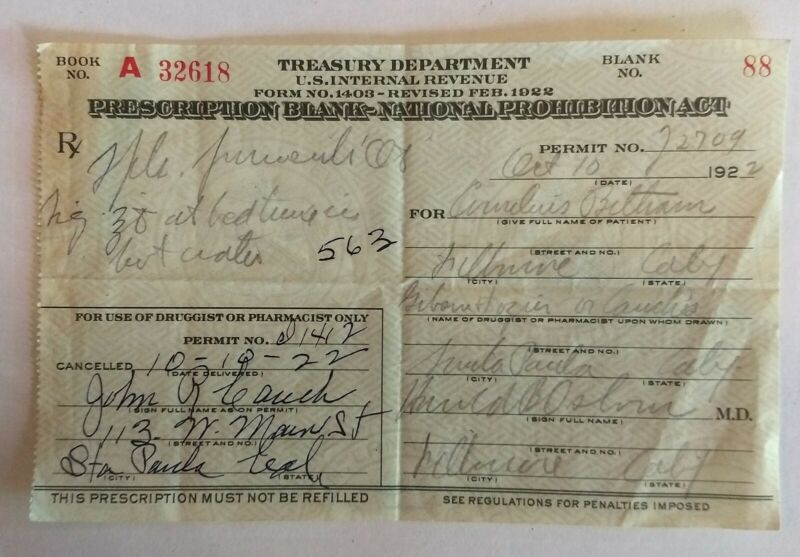 BOOK NO. A 32618
TREASURY DEPARTMENT
U.S. INTERNAL REVENUE
FORM NO. 1403-REVISED FEB. 1922
BLANK NO. 88
PRESCRIPTION BLANK-NATIONAL PROHIBITION ACT
Rx
at bedtime in
hot water
563
PERMIT NO. 72709
Oct 10 1922
(DATE)
FOR Cornelius Beltram
(GIVE FULL NAME OF PATIENT)
(STREET AND NO.)
Fillmore
(CITY) (STATE)
(NAME OF DRUGGIST OR PHARMACIST UPON WHOM DRAWN)
(STREET AND NO.)
Santa Paula
(CITY) (STATE)
Osborn M.D.
(SIGN FULL NAME)
(STREET AND NO.)
Fillmore
(CITY) (STATE)
FOR USE OF DRUGGIST OR PHARMACIST ONLY
PERMIT NO. 1412
CANCELLED 10-10-22
(DATE DELIVERED)
John R Cauch
(SIGN FULL NAME AS ON PERMIT)
113 W. Main St
(STREET AND NO.)
Sta Paula Cal
(CITY) (STATE)
THIS PRESCRIPTION MUST NOT BE REFILLED
SEE REGULATIONS FOR PENALTIES IMPOSED